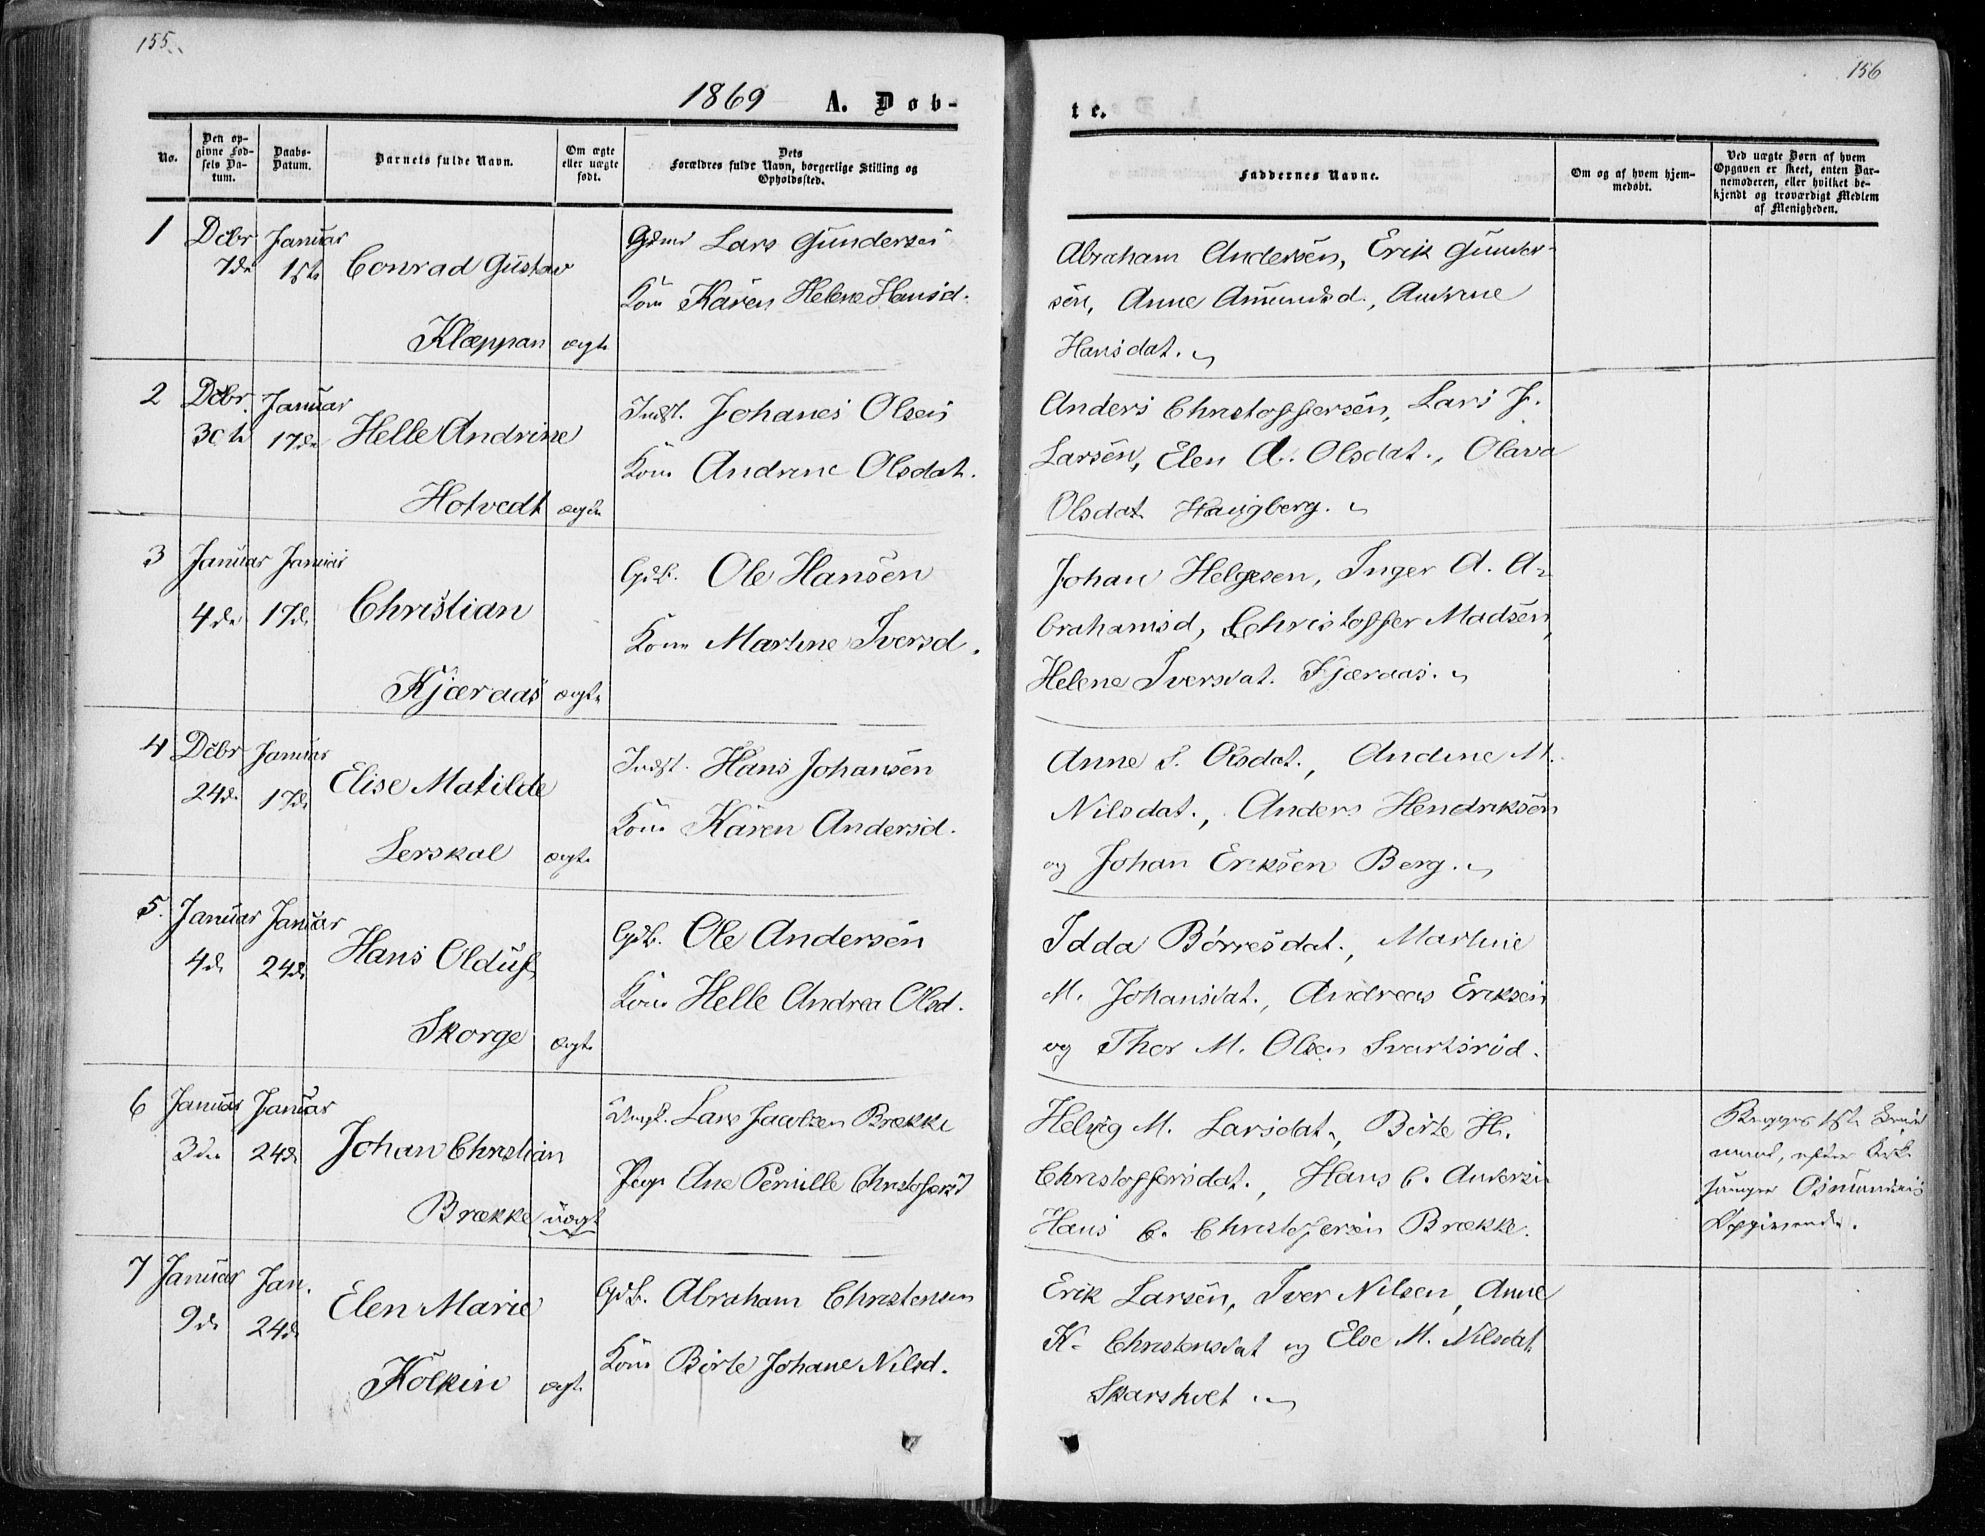 155.
156
1869 A. Døb-
te.
No.
Den opgivne Fødsels Datum.
Daabs-Datum.
Barnets fulde Navn.
Om ægte eller uægte født.
Dets Forældres fulde Navn, borgerlige Stilling og Opholdssted.
Faddernes Navne.
Om og af hvem hjemmedøbt.
Ved uægte Børn af hvem Opgaven er skeet, enten Barnemoderen, eller hvilket bekjendt og troværdigt Medlem af Menigheden.
1 Dcbr Januar
7de 1ste Conrad Gustav
Klæppan ægte
Gdmd Lars Gundersen
Kone Karen Helene Hansd.
Abraham Andersen, Erik Gunder-
sen, Anne Amundsd., Andrine
Hansdat.
2 Dcbr. Januar
30te 17de Helle Andrine
Hotvedt ægte
Indst. Johanes Olsen
Kone Andrine Olsdat.
Anders Christoffersen, Lars J.
Larsen, Elen A. Olsdat., Olava
Olsdat Haugberg.
3 Januar Januar
4de 17de Christian
Kjæraas ægte
Gdb. Ole Hansen
Kone Martine Iversd.
Johan Helgesen, Inger A. A-
brahamsd, Christoffer Madsen,
Helene Iversdat. Kjæraas.
4 Dcbr Januar
24de 17de Elise Matilde
Lerskal ægte
Indst. Hans Johansen
Kone Karen Andersd.
Anne S. Olsdat., Andine M.
Nilsdat., Anders Hendriksen
og Johan Eriksen Berg.
5. Januar Januar
4de 24de Hans Olduf
Skorge ægte
Gdb. Ole Andersen
Kone Helle Andrea Olsd.
Idda Børresdat., Martine
M. Johansdat., Andreas Eriksen
og Thor M. Olsen Svartsrød.
6 Januar Januar
3die 24de Johan Christian
Brække uægte
Ungk. Lars Jacobsen Brække
Pige Ane Pernille Christofersd
Helvig M. Larsdat., Birte H.
Christoffersdat., Hans C. Andersen
Hans C. Christofersen Brække.
Begges 1ste
efter Kirke-
sanger Osmundsens
Opgivende.
7 Januar Jan.
9de 24de Elen Marie
Kolkin ægte
Gdb. Abraham Christensen
Kone Birte Johane Nilsd.
Erik Larsen, Iver Nilsen, Anne
K. Christensdat og Else M. Nilsdat
Skarsholt